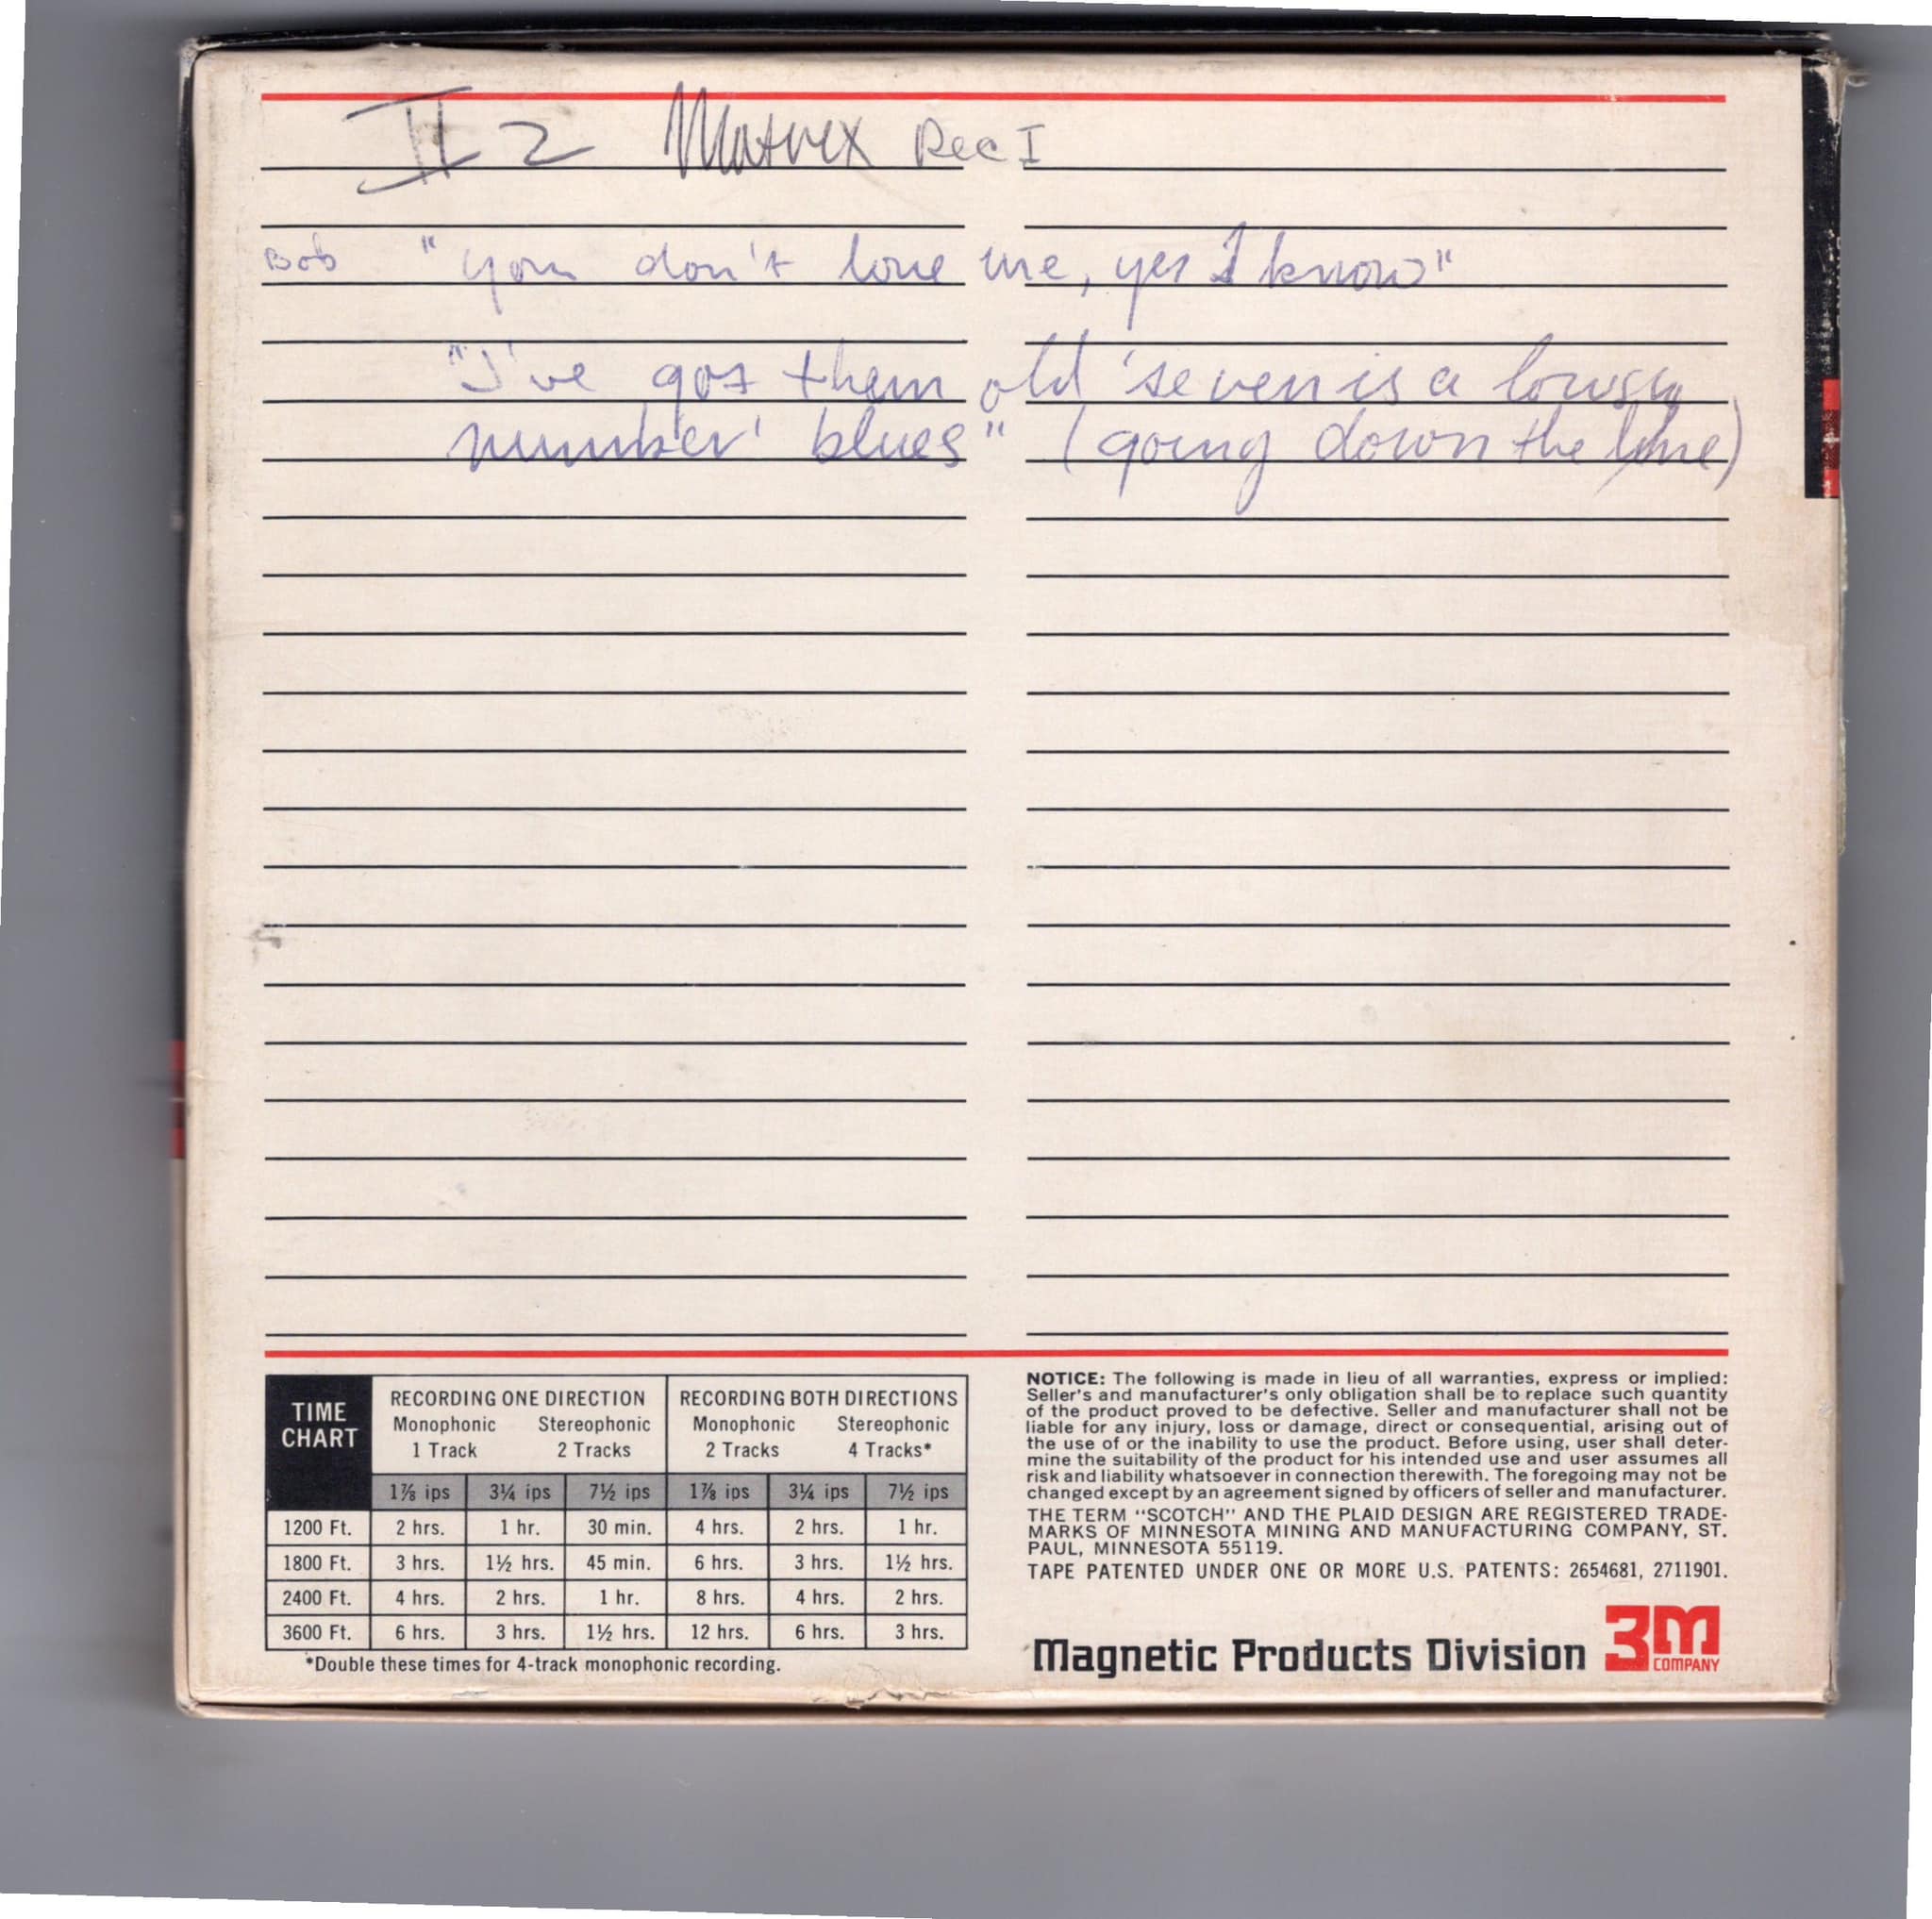 II 2 Matrix Rec I
Bob "you don't love me, yes I know"
"I've got them old 'seven is a lousy
number' blues" (going down the line)
TIME CHART
RECORDING ONE DIRECTION RECORDING BOTH DIRECTIONS
Monophonic Stereophonic Monophonic Stereophonic
1 Track 2 Tracks 2 Tracks 4 Tracks*
1⅞ ips 3¾ ips 7½ ips 1⅞ ips 3¾ ips 7½ ips
1200 Ft. 2 hrs. 1 hr. 30 min. 4 hrs. 2 hrs. 1 hr.
1800 Ft. 3 hrs. 1½ hrs. 45 min. 6 hrs. 3 hrs. 1½ hrs.
2400 Ft. 4 hrs. 2 hrs. 1 hr. 8 hrs. 4 hrs. 2 hrs.
3600 Ft. 6 hrs. 3 hrs. 1½ hrs. 12 hrs. 6 hrs. 3 hrs.
*Double these times for 4-track monophonic recording.
NOTICE: The following is made in lieu of all warranties, express or implied:
Seller's and manufacturer's only obligation shall be to replace such quantity
of the product proved to be defective. Seller and manufacturer shall not be
liable for any injury, loss or damage, direct or consequential, arising out of
the use of or the inability to use the product. Before using, user shall deter-
mine the suitability of the product for his intended use and user assumes all
risk and liability whatsoever in connection therewith. The foregoing may not be
changed except by an agreement signed by officers of seller and manufacturer.
THE TERM "SCOTCH" AND THE PLAID DESIGN ARE REGISTERED TRADE-
MARKS OF MINNESOTA MINING AND MANUFACTURING COMPANY, ST.
PAUL, MINNESOTA 55119.
TAPE PATENTED UNDER ONE OR MORE U.S. PATENTS: 2654681, 2711901.
Magnetic Products Division 3M
COMPANY